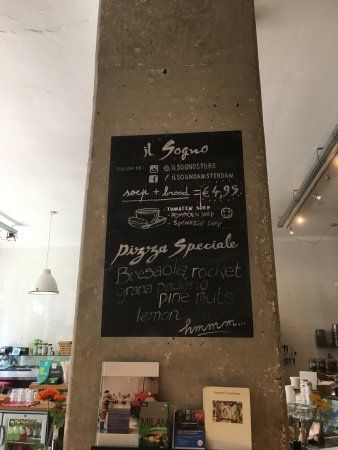 il Sogno
FOLLOW US: @ILSOGNOSTORE
/ILSOGNOAMSTERDAM
soep + brood = € 4,95
- TOMATEN SOEP
- POMPOEN SOEP
- Spinazie soep
Pizza Speciale
Bresaola, rocket
grana padano
pine nuts
lemon
hmmm...
MILAN